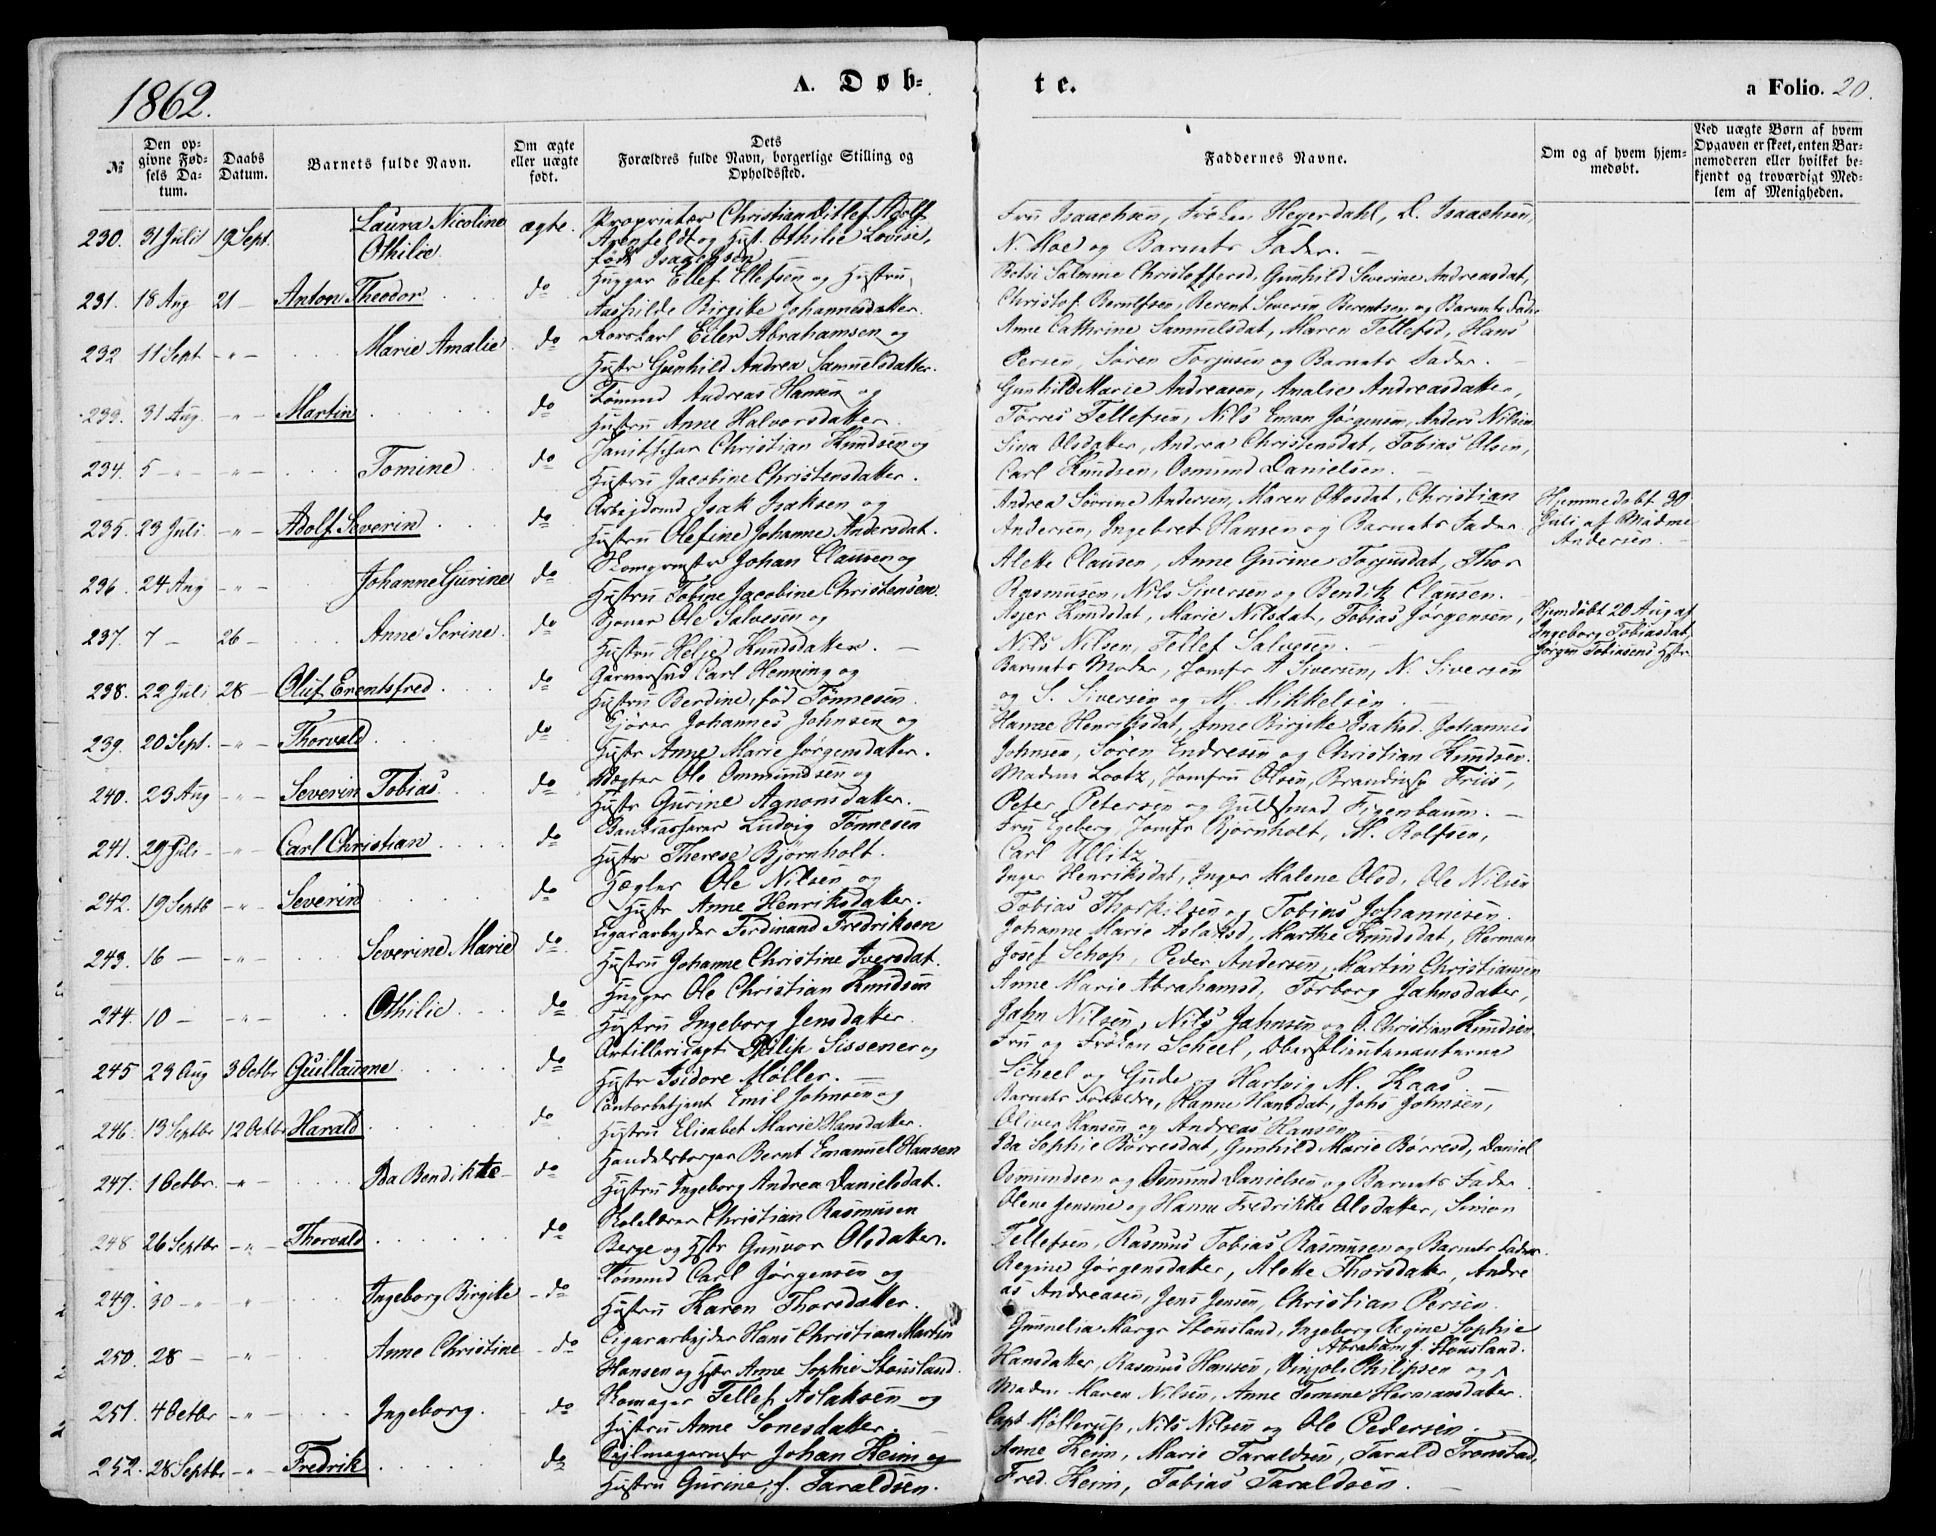 1862.
A. Døb-
te.
a Folio. 20.
№
Den op-
givne Fød-
sels Da-
tum.
Daabs
Datum.
Barnets fulde Navn.
Om ægte
eller uægte
født.
Dets
Forældres fulde Navn, borgerlige Stilling og
Opholdsted.
Faddernes Navne.
Om og af hvem hjem-
medøbt.
Ved uægte Børn af hvem
Opgaven er skeet, enten Bar-
nemoderen eller hvilket be-
kjendt og troværdigt Med-
lem af Menigheden.
230. 31 Juli 19 Sept. Laura Nicoline
Othilie
ægte.
Proprietær Christian Ditlef Adolf
Arenfeldt og Hust. Othilie Lovise,
født Isaachsen.
Fru Isaachsen, Frøken Heyerdahl, D. Isaachsen,
N. Moe og Barnets Fader.
231. 18 Aug 21 — Anton Theodor do
Hugger Ellef Ellefsen og Hustru
Aashilde Birgitte Johannesdatter.
Betsi Salmine Christoffersd, Gunhild Severine Andreasdat,
Christof. Berntsen, Berent Severin Berentsen og Barnets Fader
232 11 Sept — " — Marie Amalie do
Eiler Abrahamsen og
Hustr Gunhild Andrea Samuelsdatter.
Anne Cathrine Samuelsdat, Maren Tellefsd, Hans
Persen, Søren Torjusen og Barnets Fader.
233. 31 Aug. — " — Martin do
Tømmd Andreas Hansen og
Hustru Anne Halvorsdatter.
Gunhild Marie Andreasen, Amalie Andreasdatter,
Tørres Tellefsen, Nils Eman Jørgensen, Anders Nilsen
234. 5 — " — — " — Tomine do
Christian Knudsen og
Hustru Jacobine Christensdatter.
Sina Olsdatter, Andrea Christensdat, Tobias Olsen,
Carl Knudsen, Osmund Danielsen.
235. 23 Juli — " — Adolf Severin do
Arbejdsmd Isak Isaksen og
Hustru Olefine Johanne Andersdat.
Andrea Sørine Andersen, Maren Ottosdat, Christian
Andersen, Ingebret Hansen og Barnets Fader
Hjemmedøbt 30
Juli af Madme
Andersen.
236. 24 Aug — " — Johanne Gurine do
Skomgrmstr Johan Clausen og
Hustru Tobine Jacobine Christensen.
Alette Clausen, Anne Gurine Torjusdat, Thor
Rasmusen, Nils Siversen og Bendik Clausen.
237. 7 — 26 — Anne Serine. do
Ole Salvesen og
Hustru Helje Knudsdatter.
Asjer Knudsdat, Marie Nilsdat, Tobias Jørgensen,
Nils Nilsen, Tellef Salvesen.
Hjemdøbt 20 Aug af
Ingeborg Tobiasdat,
Jørgen Tobiasens Hstr
238. 22 Juli 28 — Oluf Erentsfred do
Garversvd Carl Henning og
Hustru Berdine, fød Tønnesen.
Barnets Moder, Jomfr A Siversen, N. Siversen
og S. Siversen og M. Mikkelsen.
239. 20 Sept. — " — Thorvald do
Johannes Johnsen og
Hustr Anne Marie Jørgensdatter.
Hanne Henriksdat, Anne Birgitte Isaksd. Johannes
Johnsen, Søren Endresen og Christian Knudsen.
240. 23 Aug — " — Severin Tobias do
Vægter Ole Ommundsen og
Hustr Gurine Agnonsdatter.
Madme Lootz, Jomfru Olsen, Friis,
Peter Petersen og Guldsmed Figenbaum.
241. 29 Juli — " — Carl Christian do
Bankkasserer Ludvig Tønnesen
Hustr Therese Bjørnholt.
Fru Egeberg, Jomfr Bjørnholt, M. Rolfsen,
Carl Ullitz
242. 19 Septb — " — Severin do
Hægter Ole Nilsen og
Hustr Anne Henriksdatter.
Inger Henriksdat, Inger Malene Olsd, Ole Nilsen
Tobias Thorkilsen og Tobias Johannesen.
243. 16 — — " — Severine Marie do
Cigararbejder Ferdinand Fredriksen
Hustru Johanne Christine Iversdat.
Johanne Marie Aslaksd, Marthe Knudsdat, Herman
Josef Schop, Peder Andersen, Martin Christiansen
244. 10 — — " — Othilie do
Hugger Ole Christian Knudsen
Hustru Ingeborg Jensdatter
Anne Marie Abrahamsd, Torborg Jahnsdatter,
Jahn Nilsen, Nils Jahnsen og O. Christian Knudsen
245 23 Aug 3 Octbr Guillaume do
Artillericapt Philip Sissener og
Hustr Isidore Møller.
Fru og Frøken Scheel, Oberstlieutenanterne
Scheel og Gude og Hartvig M. Kaas
246. 13 Septbr 12 Octbr Harald do
Contorbetjent Emil Johnsen og
Hustru Elisabet Marie Hansdatter.
Barnets Forældre, Hanne Hansdat, Johs Johnsen,
Oliver Hansen og Andreas Hansen
247. 1 Octbr. — " — Ida Bendikte do
Handelsborger Bernt Emanuel Hansen
Hustru Ingeborg Andrea Danielsdat.
Ida Sophie Børresdat, Gunhild Marie Børresd, Daniel
Osmundsen og Omund Danielsen og Barnets Fader
248 26 Septbr — " — Thorvald do
Skolelærer Christian Rasmusen
Berge og Hstr Gunvor Olsdatter.
Olene Jensine og Hanne Fredrikke Olsdatter, Simon
Tellefsen, Rasmus Tobias Rasmusen og Barnets Fader.
249. 30 — " — — " — Ingeborg Birgitte do
Tømmd Carl Jørgensen og
Hustru Karen Thorsdatter.
Regine Jørgensdatter, Alette Thorsdatter, Andre
as Andreasen, Jens Jensen, Christian Persen.
250. 28 — — " — Anne Christine do
Cigararbejder Hans Christian Martin
Hansen og Hstr Anne Sophie Stousland.
Gunnelia Margr Stousland, Ingeborg Regine Sophie
Abraham J. Stousland.
Hansdatter, Rasmus Hansen, Philipsen og
251. 4 Octbr — " — Ingeborg. do
Skomager Tellef Aslaksen og
Hustru Anne Sonesdatter.
Madm Maren Nilsen, Anne Tomine Hermansdatter
Capt Møllerup, Nils Nilsen og Ole Pedersen.
252. 28 Septbr — " — Fredrik do
Sejlmagermstr Johan Heim og
Hustru Gurine, f. Taraldsen.
Anne Heim, Marie Taraldsen, Tarald Tromstad,
Fred. Heim, Tobias Taraldsen.